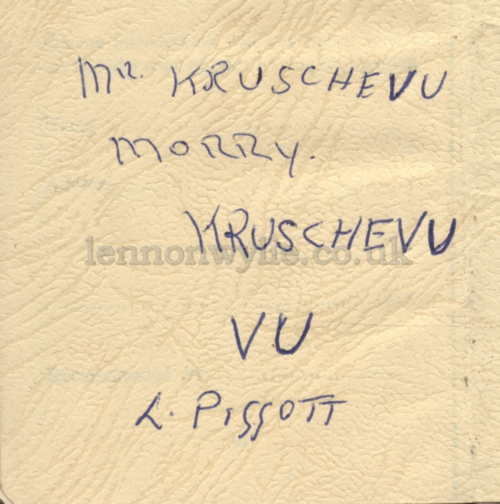 Mr. KRUSCHEVU
MORRY.
KRUSCHEVU
lennonwylie.co.uk
VU
L. PIGGOTT